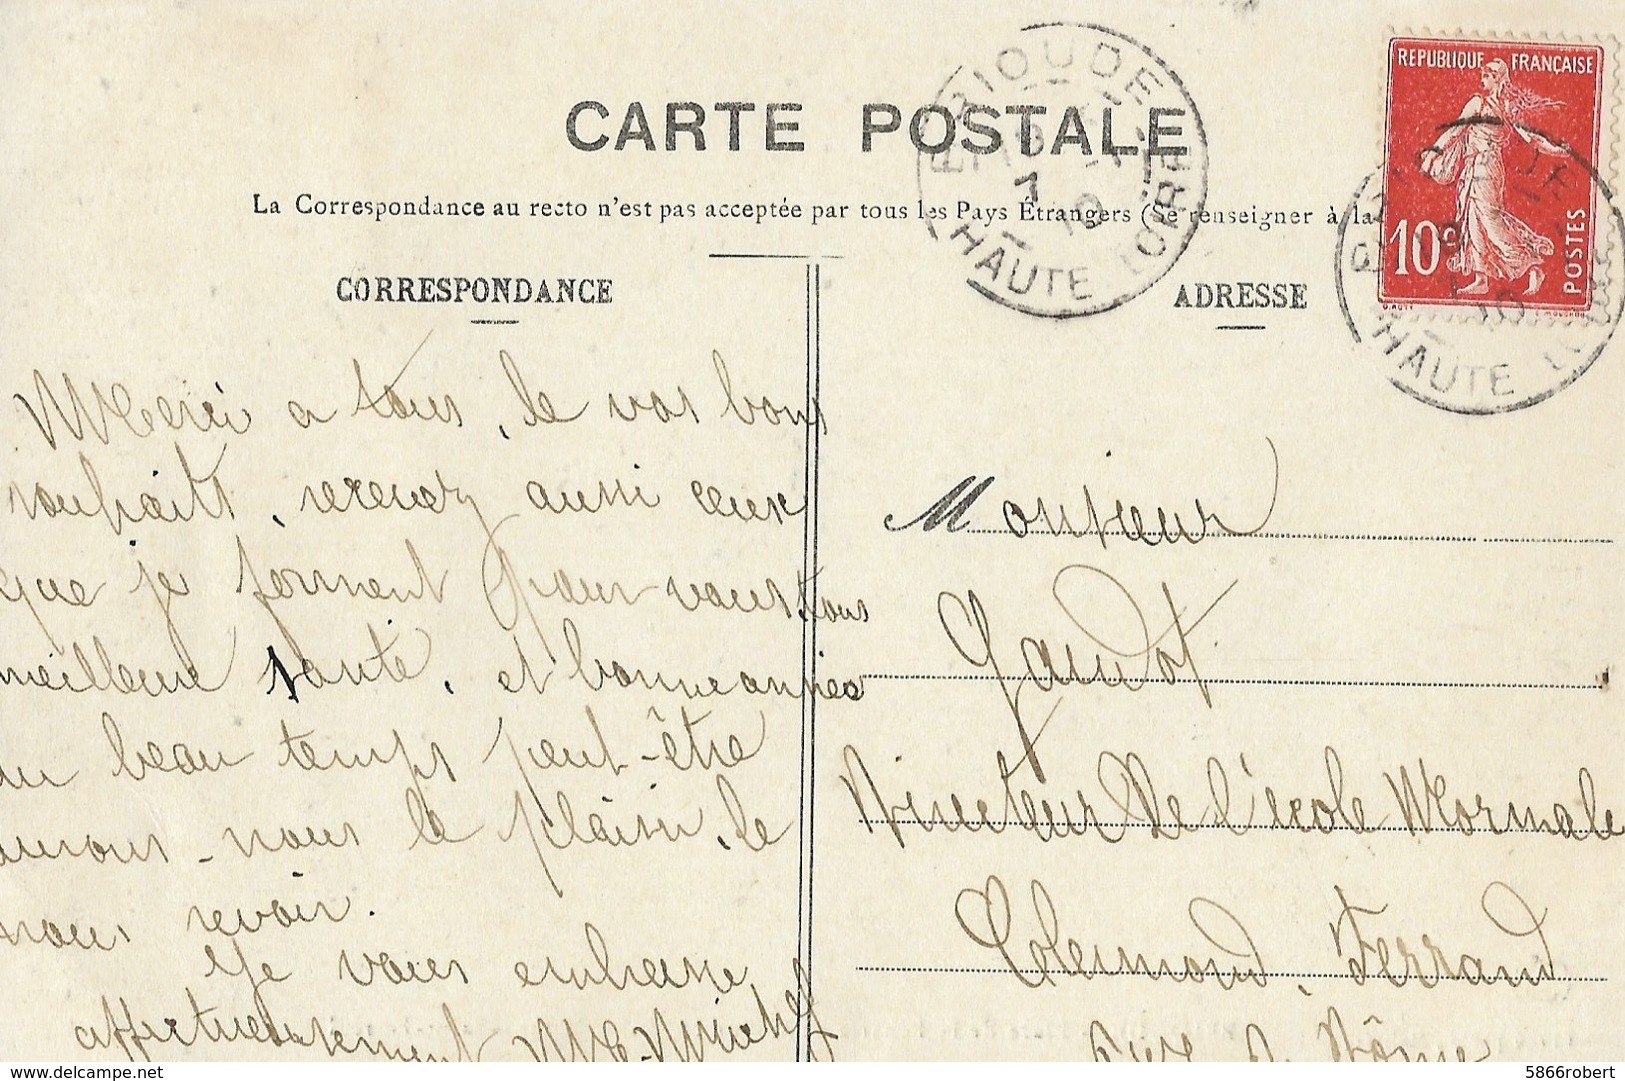 CARTE POSTALE
La Correspondance au recto n'est pas acceptée par tous les Pays Étrangers (Se renseigner à la
CORRESPONDANCE
ADRESSE
REPUBLIQUE FRANÇAISE
10c
POSTES
BRIOUDE
HAUTE LOIRE
HAUTE LOIRE
Merci a tous, de vos bons
souhaits, recevez aussi ceux
que je forment pour vous tous
meilleure santé, et bonne année
au beau temps peut-être
aurons-nous le plaisir, de
nous revoir.
Je vous embrasse
affectueusement
Monsieur
Gaudot
Directeur De l'école Normale
Clermond, Ferrand
5866robert